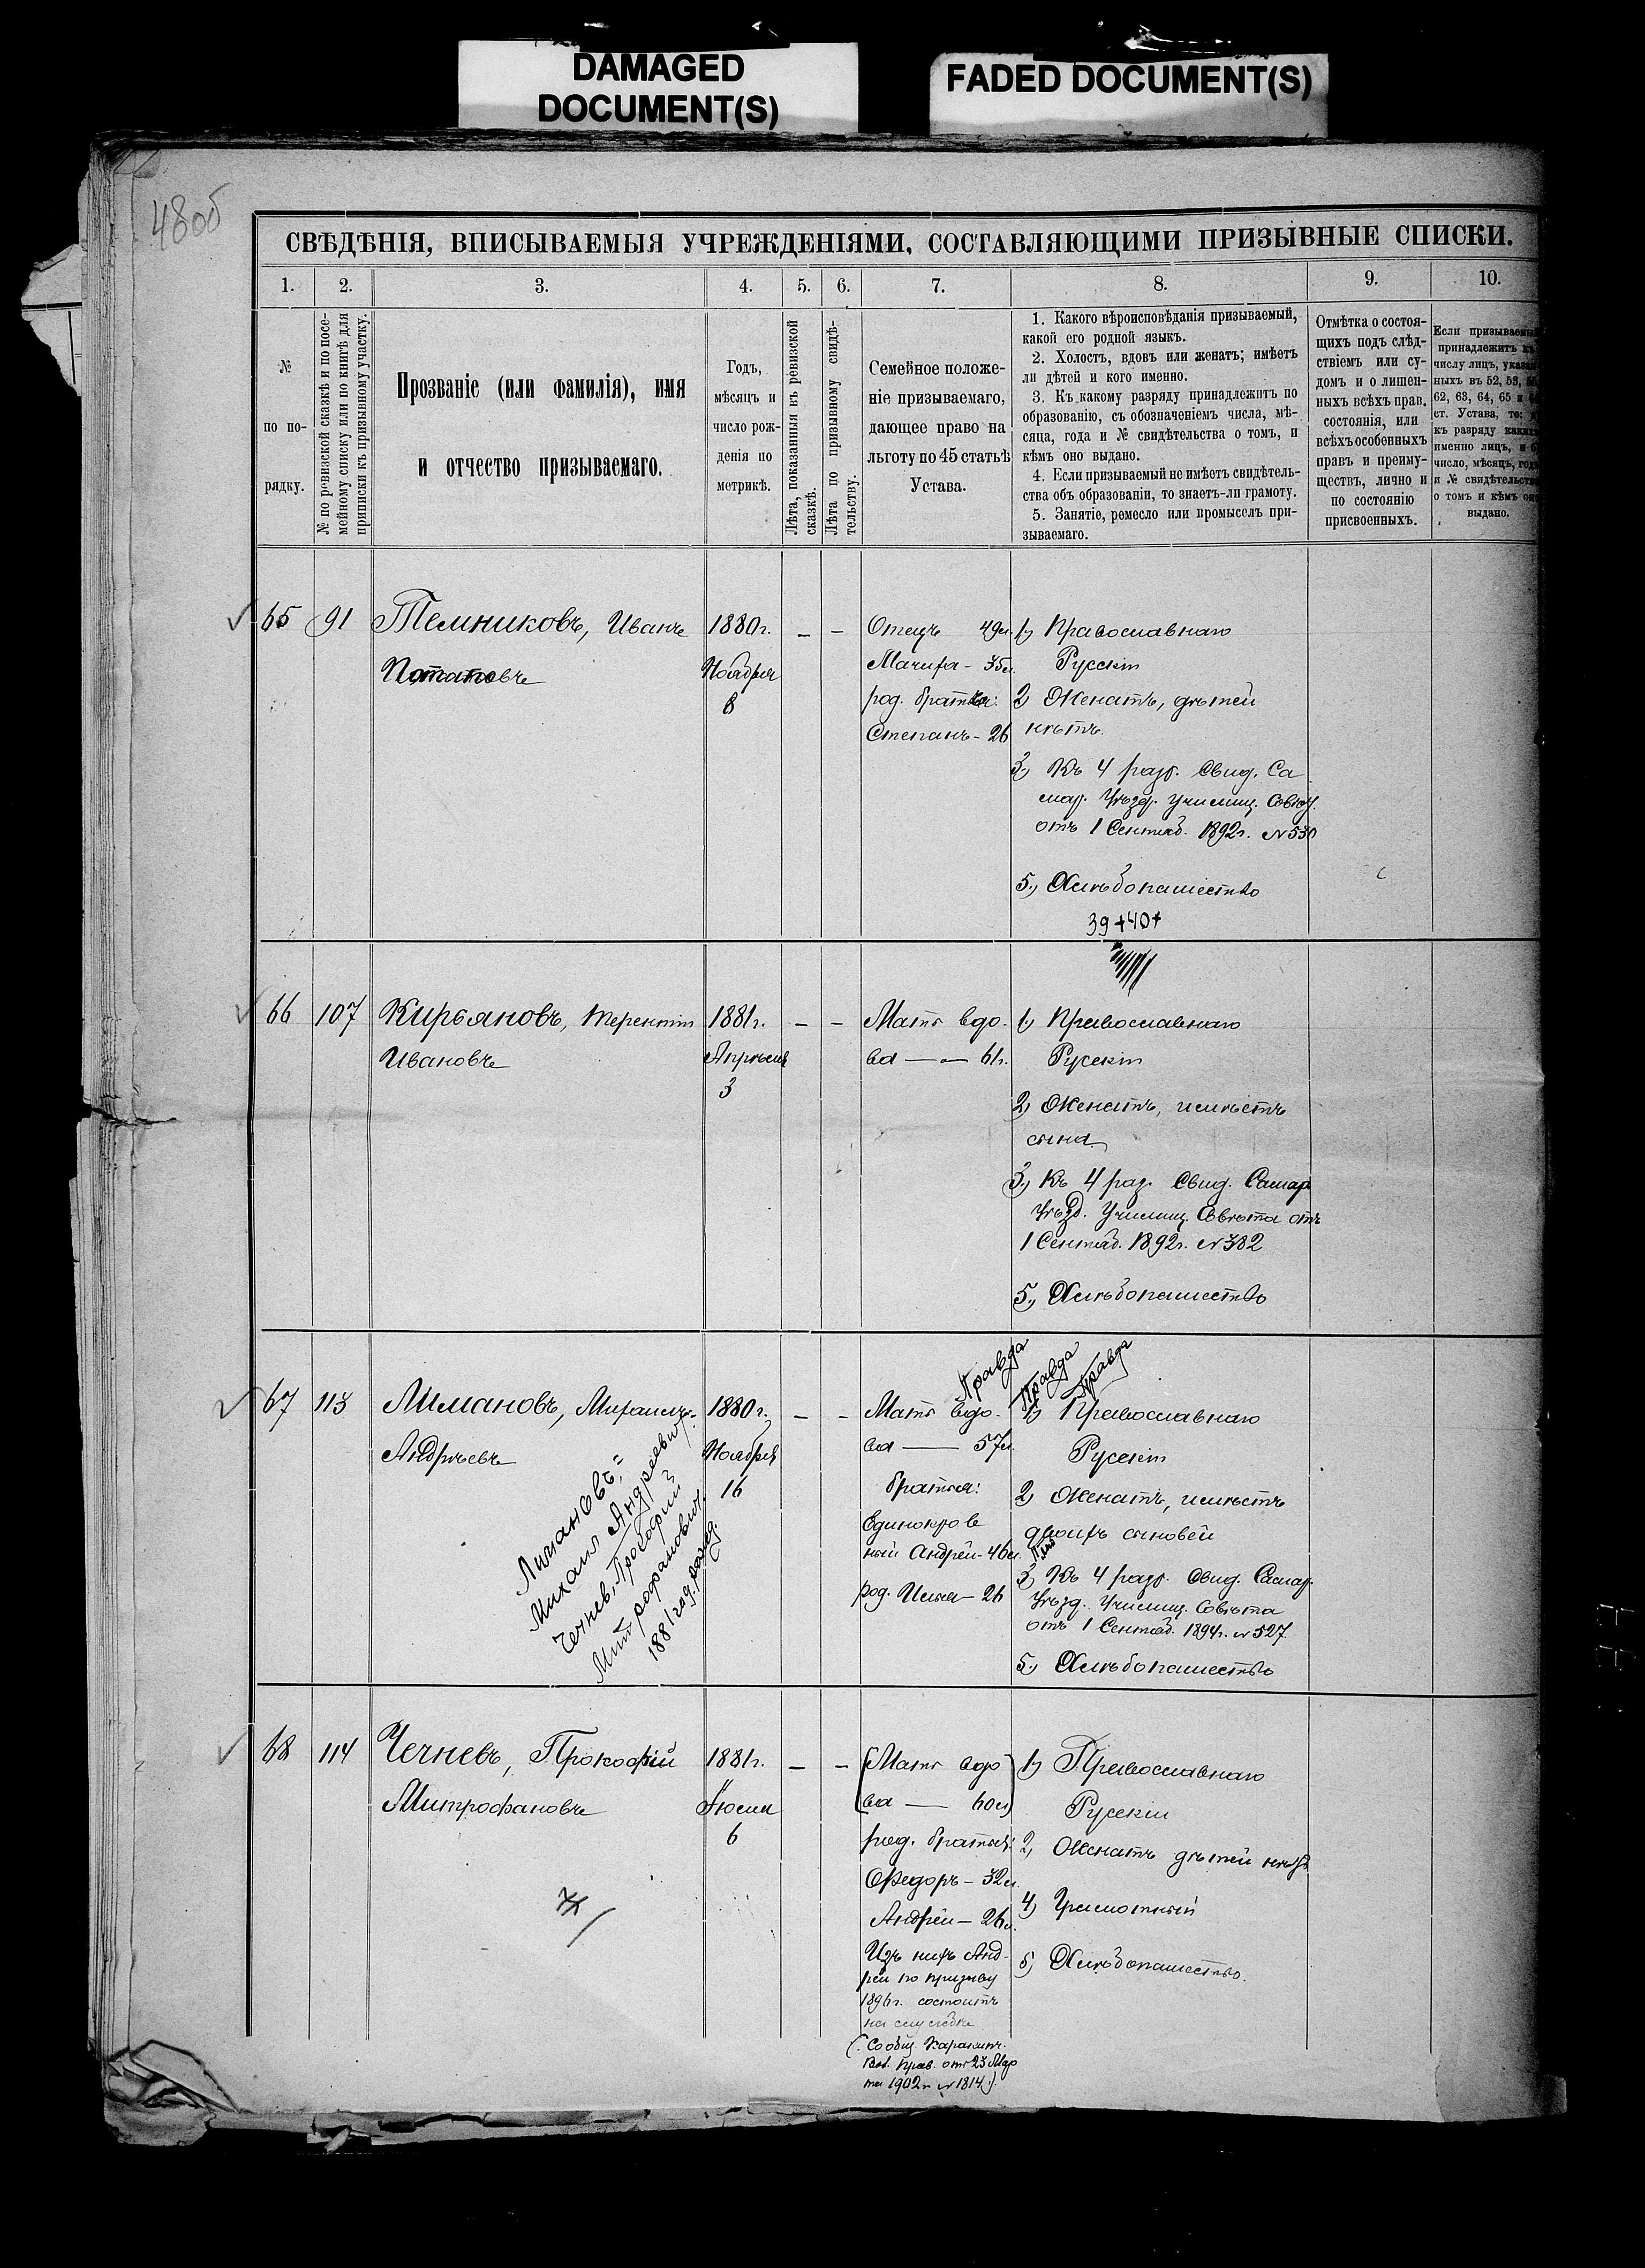 DAMAGED
DOCUMENT(S)
FADED DOCUMENT(S)
48об
СВѢДѢНІЯ, ВПИСЫВАЕМЫЯ УЧРЕЖДЕНІЯМИ, СОСТАВЛЯЮЩИМИ ПРИЗЫВНЫЕ СПИСКИ.
1.
2.
3.
4.
5.
6.
7.
8.
9.
10.
№
по по-
рядку.
№ по ревизской сказкѣ и по посе-
мейному списку или по книгѣ для
приписки къ призывному участку.
Прозваніе (или фамилія), имя
и отчество призываемаго.
Годъ,
мѣсяцъ и
число рож-
денія по
метрикѣ.
Лѣта, показанныя въ ревизской
сказкѣ.
Лѣта по призывному свидѣ-
тельству.
Семейное положе-
ніе призываемаго,
дающее право на
льготу по 45 статьѣ
Устава.
1. Какого вѣроисповѣданія призываемый,
какой его родной языкъ.
2. Холостъ, вдовъ или женатъ; имѣетъ
ли дѣтей и кого именно.
3. Къ какому разряду принадлежитъ по
образованію, съ обозначеніемъ числа, мѣ-
сяца, года и № свидѣтельства о томъ, и
кѣмъ оно выдано.
4. Если призываемый не имѣетъ свидѣтель-
ства объ образованіи, то знаетъ-ли грамоту.
5. Занятіе, ремесло или промыселъ при-
зываемаго.
Отмѣтка о состоя-
щихъ подъ слѣд-
ствіемъ или су-
домъ и о лишен-
ныхъ всѣхъ прав.
состоянія, или
всѣхъ особенныхъ
правъ и преиму-
ществъ, лично и
по состоянію
присвоенныхъ.
Если призываемый
принадлежитъ къ
числу лицъ, указан-
ныхъ въ 52, 53,
62, 63, 64, 65 и
ст. Устава, то:
къ разряду какихъ
именно лицъ, и
число, мѣсяцъ, годъ
и № свидѣтельства
о томъ и кѣмъ оно
выдано.
65
91
Темниковъ, Иванъ
Потаповъ
1880г.
Ноября
8
–
–
Отецъ 49л.
Мачиха – 35л.
род. братья:
Степанъ – 26
1) Православнаго
Русскій
2) Женатъ, дѣтей
нѣтъ.
3) Къ 4 разр. Свид. Са
мар. Уѣзд. Училищ. Совѣт.
отъ 1 Сентяб. 1892г. № 530
5.) Хлѣбопашество
39+40+
66
107
Кирьяновъ, Терентій
Ивановъ
1881г.
Апрѣля
3
–
–
Мать вдо-
ва — 61г.
1) Православнаго
Русскій
2) Женатъ, имѣетъ
сына.
3) Къ 4 раз. Свид. Самар
Уѣзд. Училищ. Совѣта отъ
1 Сентяб. 1892г. № 382
5.) Хлѣбопашество
67
113
Лимановъ, Михаилъ
Андрѣевъ
Лимановъ
Михаил Андреевич
Чечнев, Прокофий
Митрофанович
1881 год. рожд.
1880г.
Ноября
16
–
–
Правда
Правда
Правда
Мать вдо-
ва — 57л.
братья:
Единокров
ный Андрей – 46л.
род. Илья – 26
1) Православнаго
Русскій
2) Женатъ, имѣетъ
двоихъ сыновей
3) Къ 4 разр. Свид. Самар.
Уѣзд. Училищ. Совѣта
отъ 1 Сентяб. 1894г. № 527
5.) Хлѣбопашество
68
114
Чечневъ, Прокофій
Митрофановъ
1881г.
Іюля
6
–
–
(Мать вдо
ва — 60л)
род. братья:
Федоръ – 32л.
Андрей – 26л.
Изъ нихъ Анд-
рей по призыву
1896г. состоитъ
на службѣ
(Сообщ.
Вол. Прав. отъ 23 Мар
та 1902г. № 1814.)
1) Православнаго
Русскій
2) Женатъ дѣтей нѣтъ
4) Грамотный
5) Хлѣбопашество.